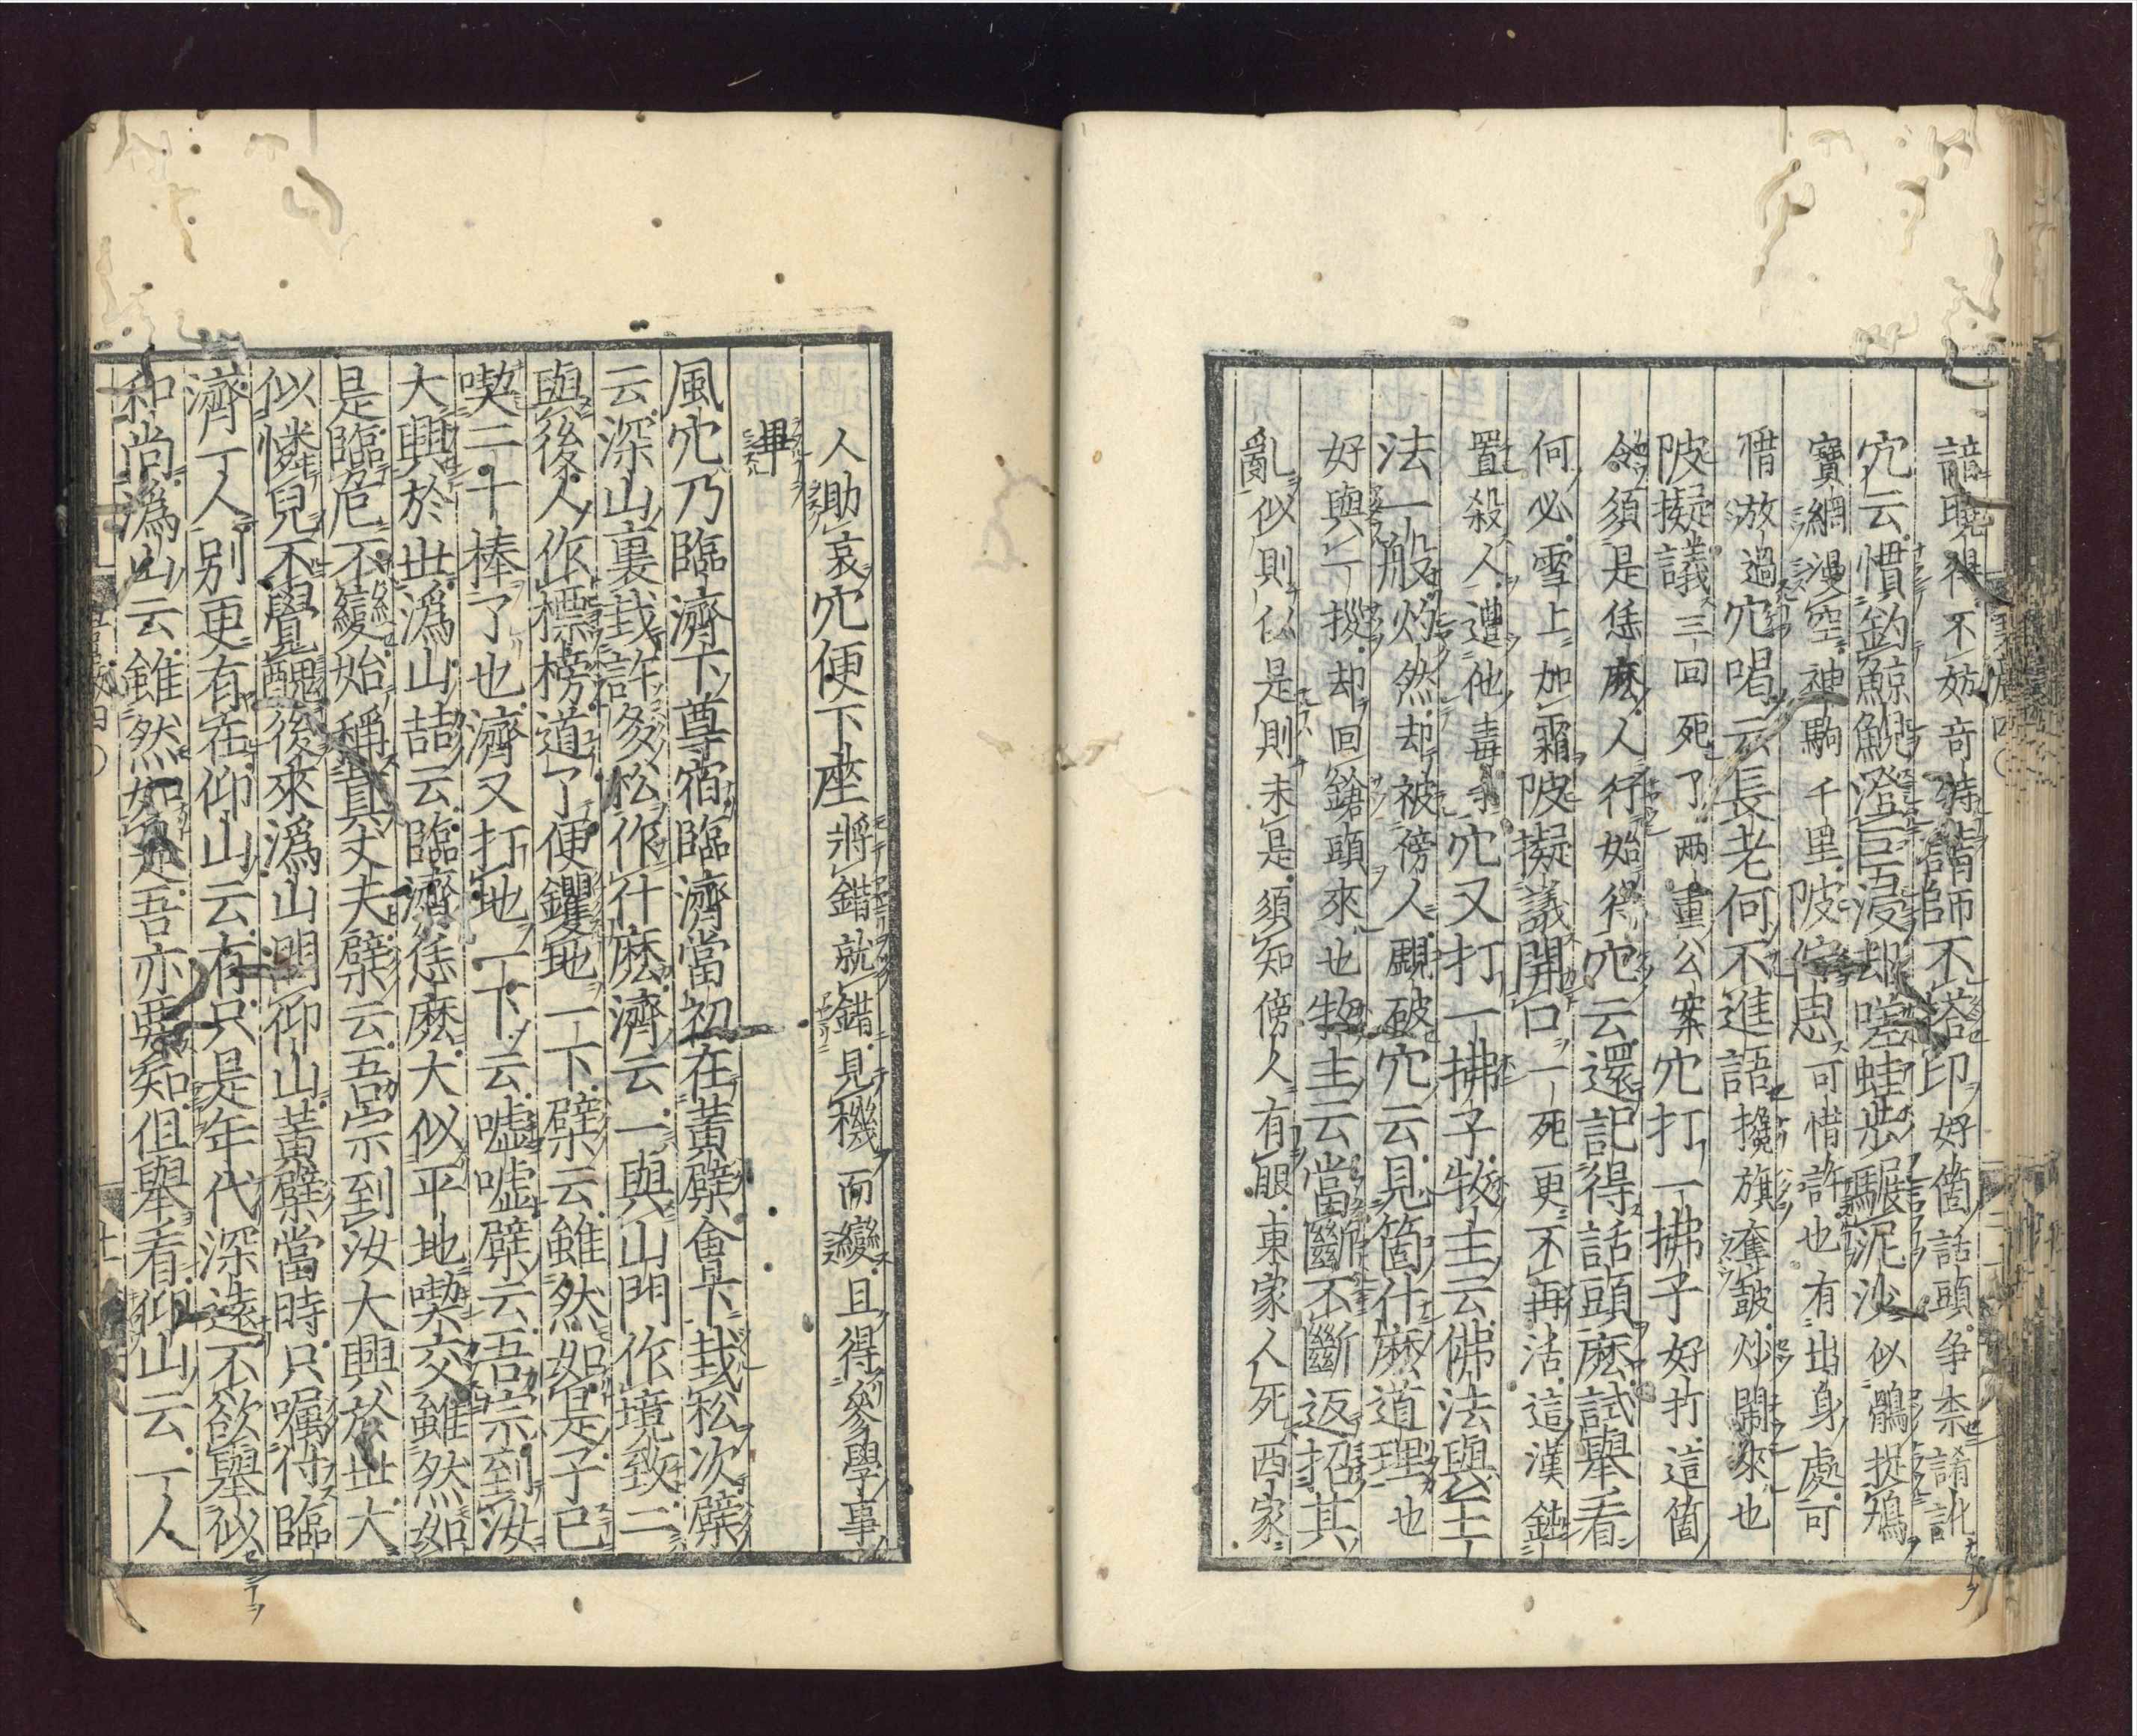 諳曉得不妨奇特請師不搭印好箇話頭爭柰誵訛
穴云慣釣鯨鯢澄巨浸却嗟蛙步驟泥沙似鶻捉鳩
寶網漫空神駒千里陂佇思可惜許也有出身處可
惜放過穴喝云長老何不進語攙旗奪皷炒鬧來也
陂擬議三回死了兩重公案穴打一拂子好打這箇
令須是恁麼人行始得穴云還記得話頭麼試舉看
何必雪上加霜陂擬議開口一死更不再活這漢鈍
置殺人遭他毒手穴又打一拂子牧主云佛法與王
法一般灼然却被傍人覷破穴云見箇什麼道理也
好與一拶却回鎗頭來也牧主云當斷不斷返招其
亂似則似是則未是須知傍人有眼東家人死西家
人助哀穴便下座將錯就錯見機而變且得參學事
畢
風穴乃臨濟下尊宿臨濟當初在黃檗會下栽松次檗
云深山裏栽許多松作什麼濟云一與山門作境致二
與後人作標榜道了便钁地一下檗云雖然如是子已
喫二十棒了也濟又打地一下云噓噓檗云吾宗到汝
大興於世溈山喆云臨濟恁麼大似平地喫交雖然如
是臨危不變始稱真丈夫檗云吾宗到汝大興於世大
似憐兒不覺醜後來溈山問仰山黃檗當時只囑付臨
濟一人別更有在仰山云有只是年代深遠不欲舉似
和尚溈山云雖然如是吾亦要知但舉看仰山云一人